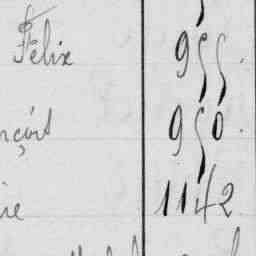 Felix 955.
nçois 950.
ie 1142